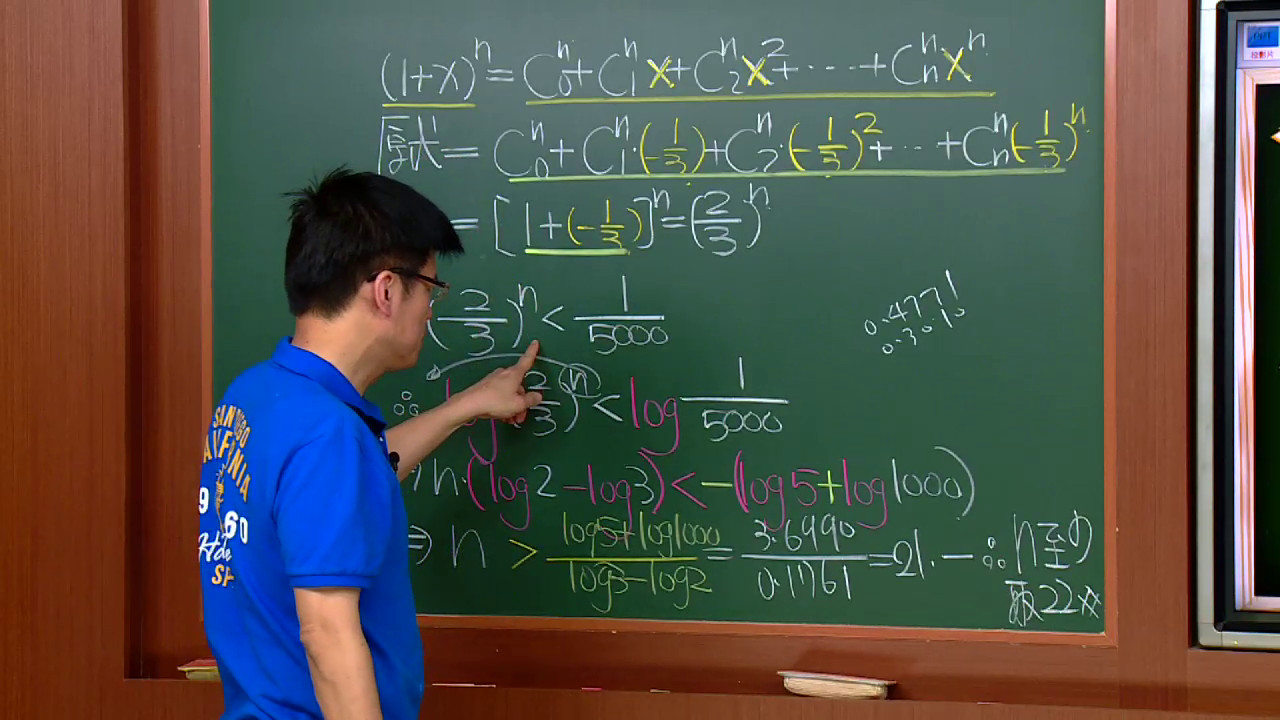 (1+x)ⁿ = C₀ⁿ + C₁ⁿ x + C₂ⁿ x² + ‥‥ + Cₙⁿ xⁿ
原式 = C₀ⁿ + C₁ⁿ·(-1/3) + C₂ⁿ·(-1/3)² + ‥‥ + Cₙⁿ(-1/3)ⁿ
= [1+(-1/3)]ⁿ = (2/3)ⁿ
(2/3)ⁿ < 1/5000
0.4771
0.3010
∴ (2/3)ⁿ < log 1/5000
n·(log2 - log3) < -(log5 + log1000)
⇒ n > (log5+log1000)/(log3-log2) = 3.6990/0.1761 = 21.- ∴ n至少
取22
SAN
9 60
SP